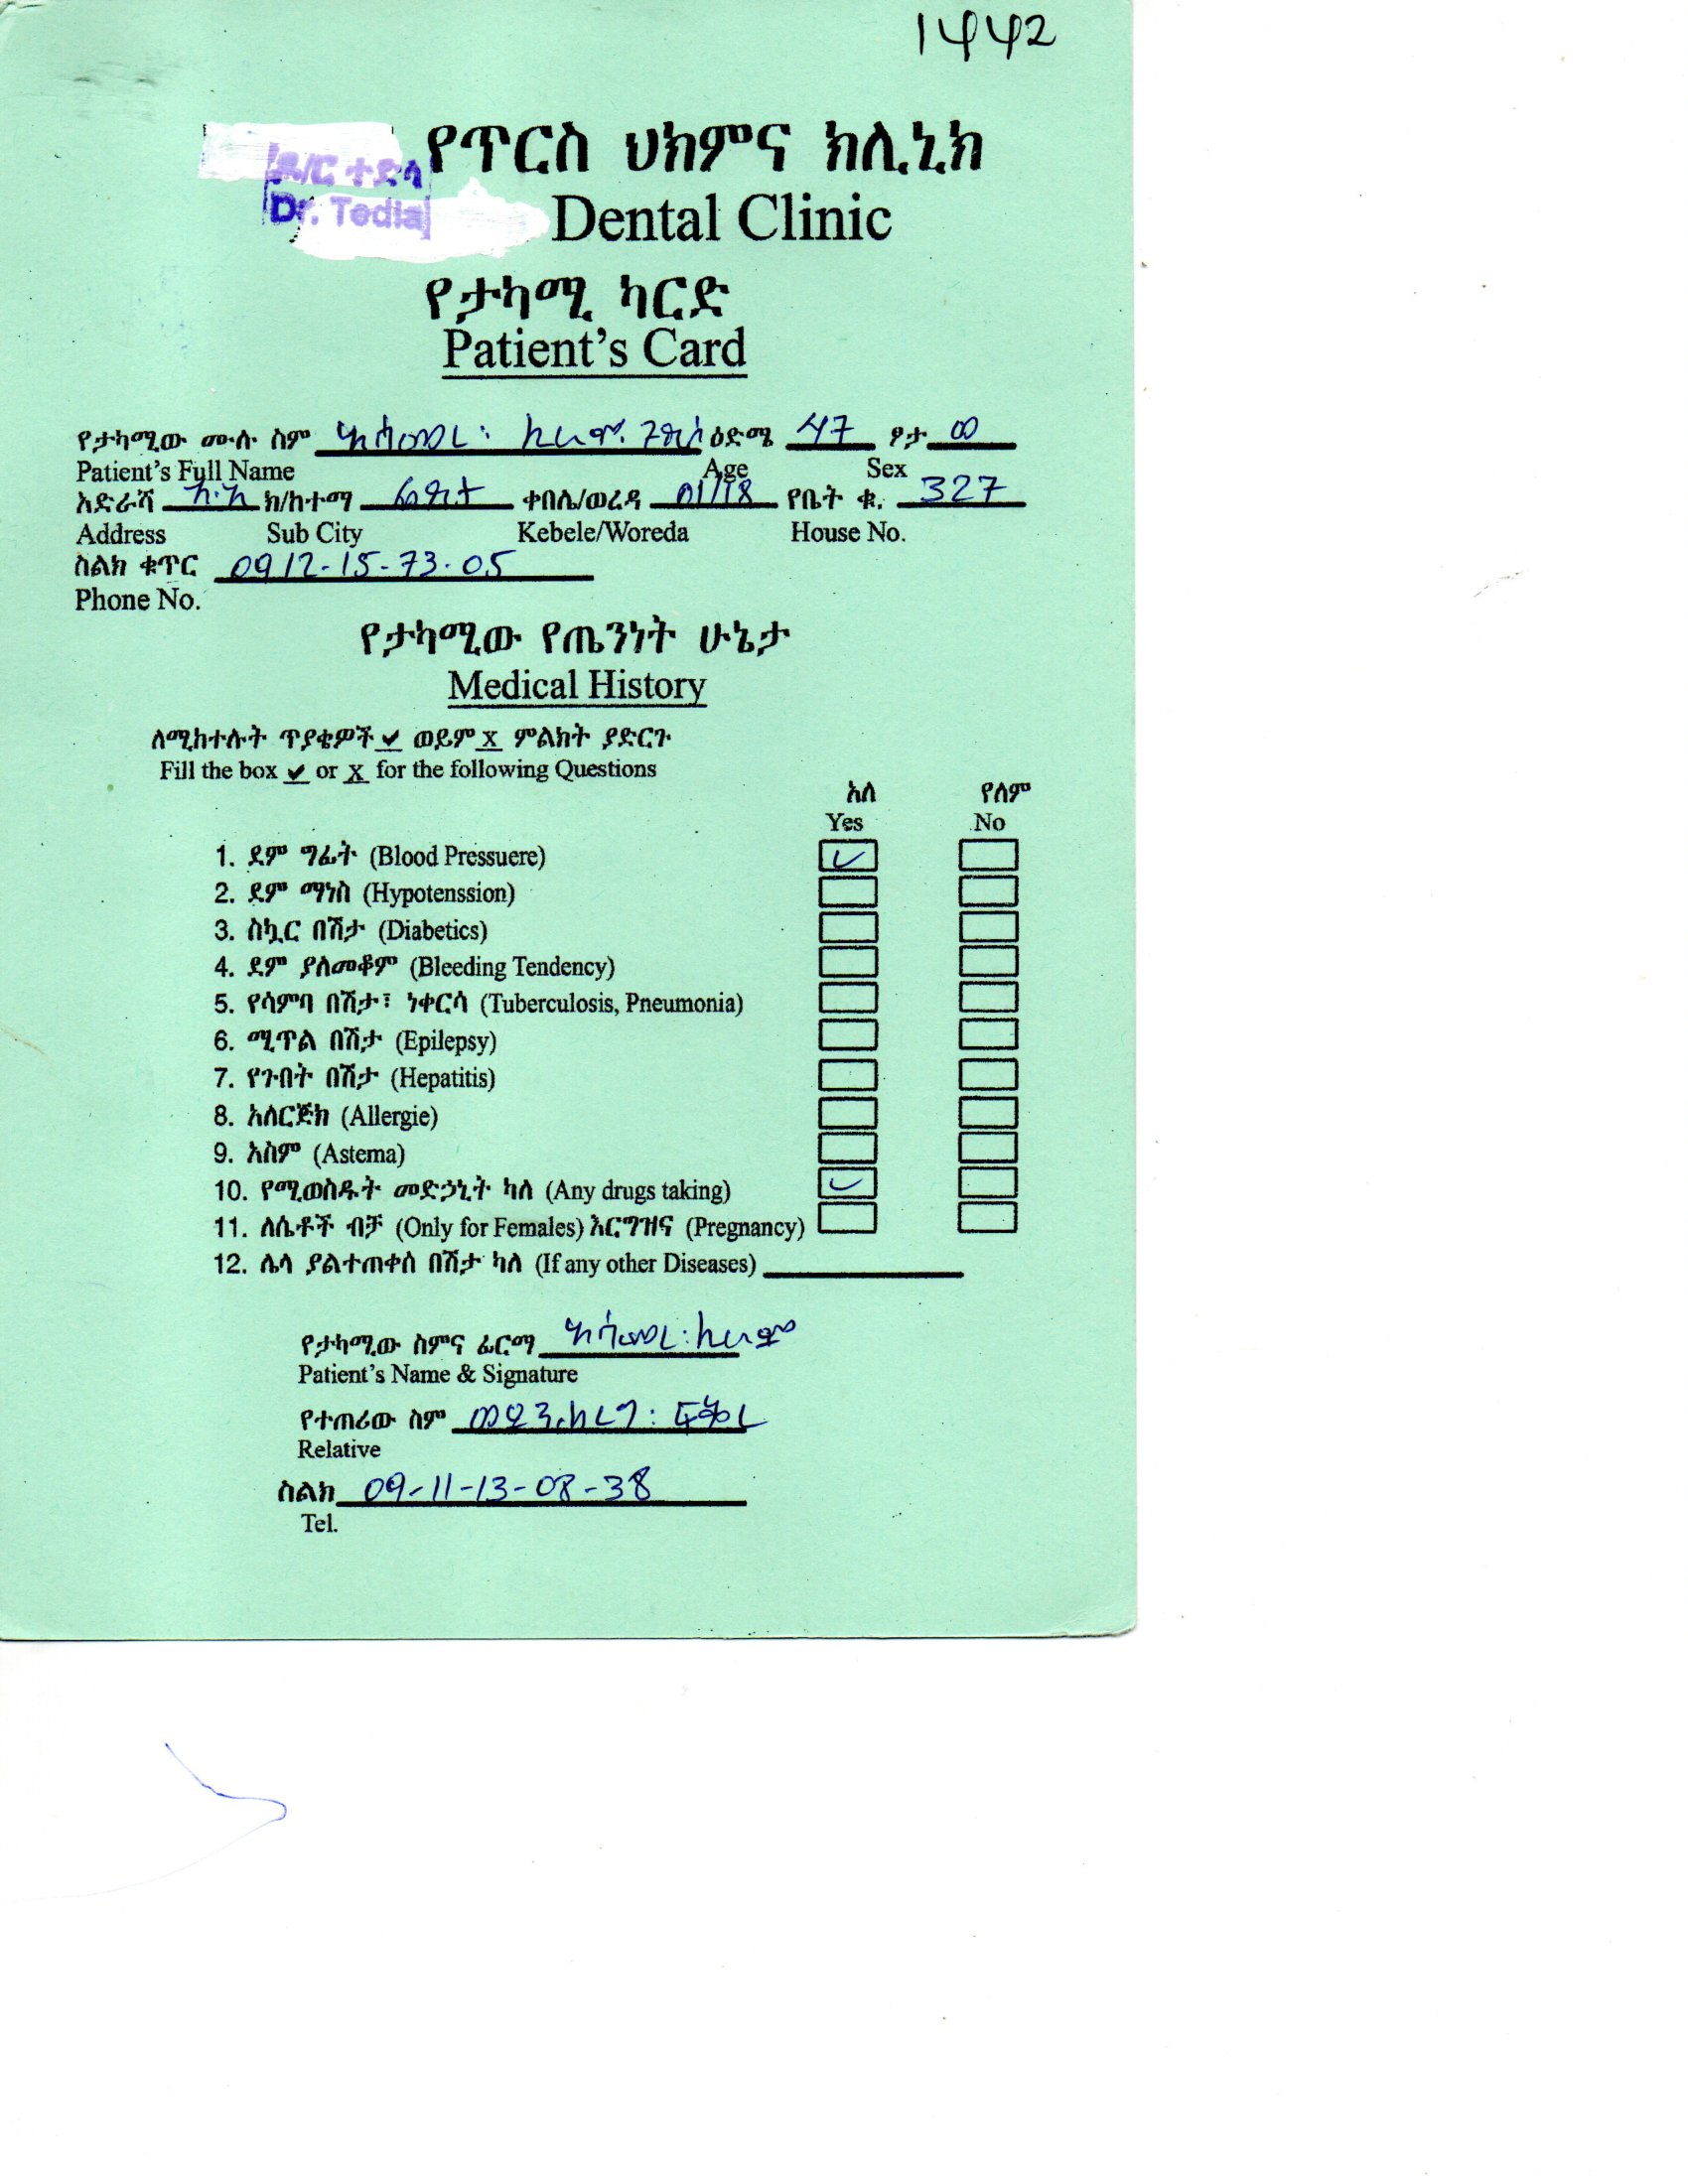 1442
ዶ/ር ተድላ የጥርስ ህክምና ክሊኒክ
Dr. Tedla Dental Clinic
የታካሚ ካርድ
Patient's Card
የታካሚው ሙሉ ስም ዕድሜ 47 ፆታ ወ
Patient's Full Name Age Sex
አድራሻ አ.አ ክ/ከተማ ቀበሌ/ወረዳ 01/18 የቤት ቁ. 327
Address Sub City Kebele/Woreda House No.
ስልክ ቁጥር 0912-15-73-05
Phone No.
የታካሚው የጤንነት ሁኔታ
Medical History
ለሚከተሉት ጥያቄዎች ✔ ወይም X ምልክት ያድርጉ
Fill the box ✔ or X for the following Questions
አለ የለም
Yes No
1. ደም ግፊት (Blood Pressuere) ✓
2. ደም ማነስ (Hypotenssion)
3. ስኳር በሽታ (Diabetics)
4. ደም ያለመቆም (Bleeding Tendency)
5. የሳምባ በሽታ፣ ነቀርሳ (Tuberculosis, Pneumonia)
6. ሚጥል በሽታ (Epilepsy)
7. የጉበት በሽታ (Hepatitis)
8. አለርጅክ (Allergie)
9. አስም (Astema)
10. የሚወስዱት መድኃኒት ካለ (Any drugs taking) ✓
11. ለሴቶች ብቻ (Only for Females) እርግዝና (Pregnancy)
12. ሌላ ያልተጠቀሰ በሽታ ካለ (If any other Diseases)
የታካሚው ስምና ፊርማ
Patient's Name & Signature
የተጠሪው ስም
Relative
ስልክ 09-11-13-08-38
Tel.